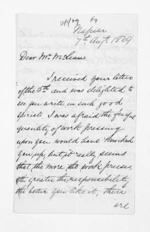 Napier
7th Augt. 1869
Dear Mr. McLean
I received your letter
of the 5th and was delighted to
see you write in such good
spirits. I was afraid the
quantity of work pressing
upon you would have
you up, but it really seems
that the more the work presses
the greater the responsibility
the better you like it, there
are